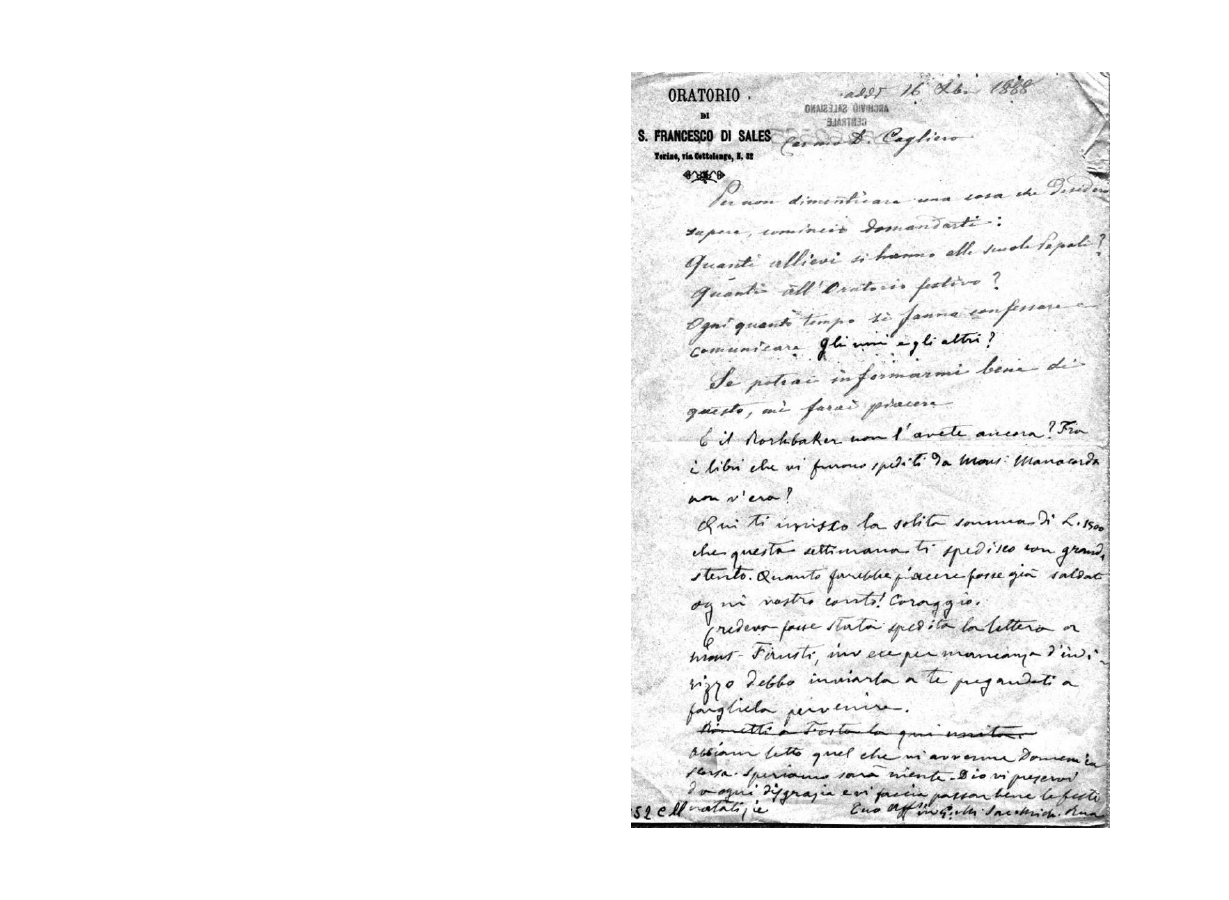 ORATORIO
DI
S. FRANCESCO DI SALES
Torino, via Cottolengo, N. 32
addì 16 Xbre 1888
ARCHIVIO SALESIANO
CENTRALE
Car.mo D. Cagliero
Per non dimenticare una cosa che desidero
sapere, comincio domandarti:
Quanti allievi si hanno alle scuole Papali?
Quanti all'Oratorio festivo?
Ogni quanto tempo si fanno confessare e
comunicare gli uni e gli altri?
Se potrai informarmi bene di
questo, mi farai piacere
E il Rorhbaker non l'avete ancora? Fra
i libri che vi furono spediti da Mons. Manacorda
non v'era?
Qui ti unisco la solita somma di L. 1500
che questa settimana ti spedisco con grande
stento. Quanto farebbe piacere fosse già saldato
ogni vostro conto! Coraggio.
Credeva fosse stata spedita la lettera a
Mons. invece per mancanza d'indi-
rizzo debbo inviarla a te pregandoti a
fargliela pervenire.
Rimetti a Festa la qui unita.
Abbiam letto quel che vi avvenne Domenica
scorsa. Speriamo sarà niente. Dio vi preservi
da ogni disgrazia e vi faccia passar bene le feste
natalizie
Tuo Aff. in G. M. Sac. Mich. Rua